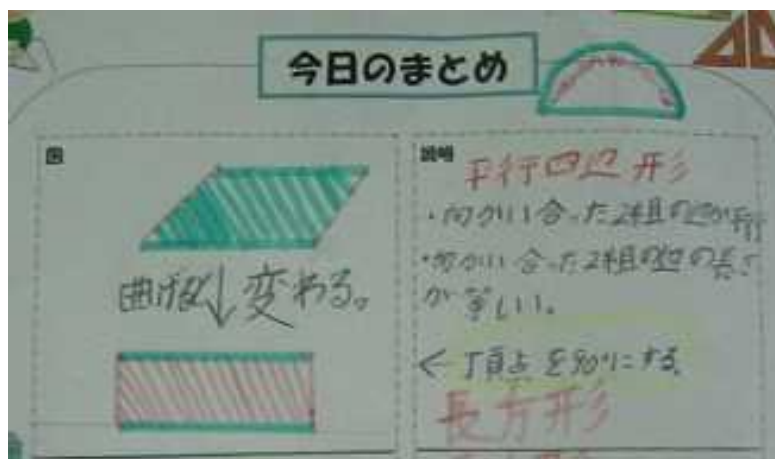 今日のまとめ
図
曲げれば↓変わる。
説明
平行四辺形
・向かい合った2組の辺が平行
・向かい合った2組の辺の長さ
が等しい。
←頂点を90°にする。
長方形